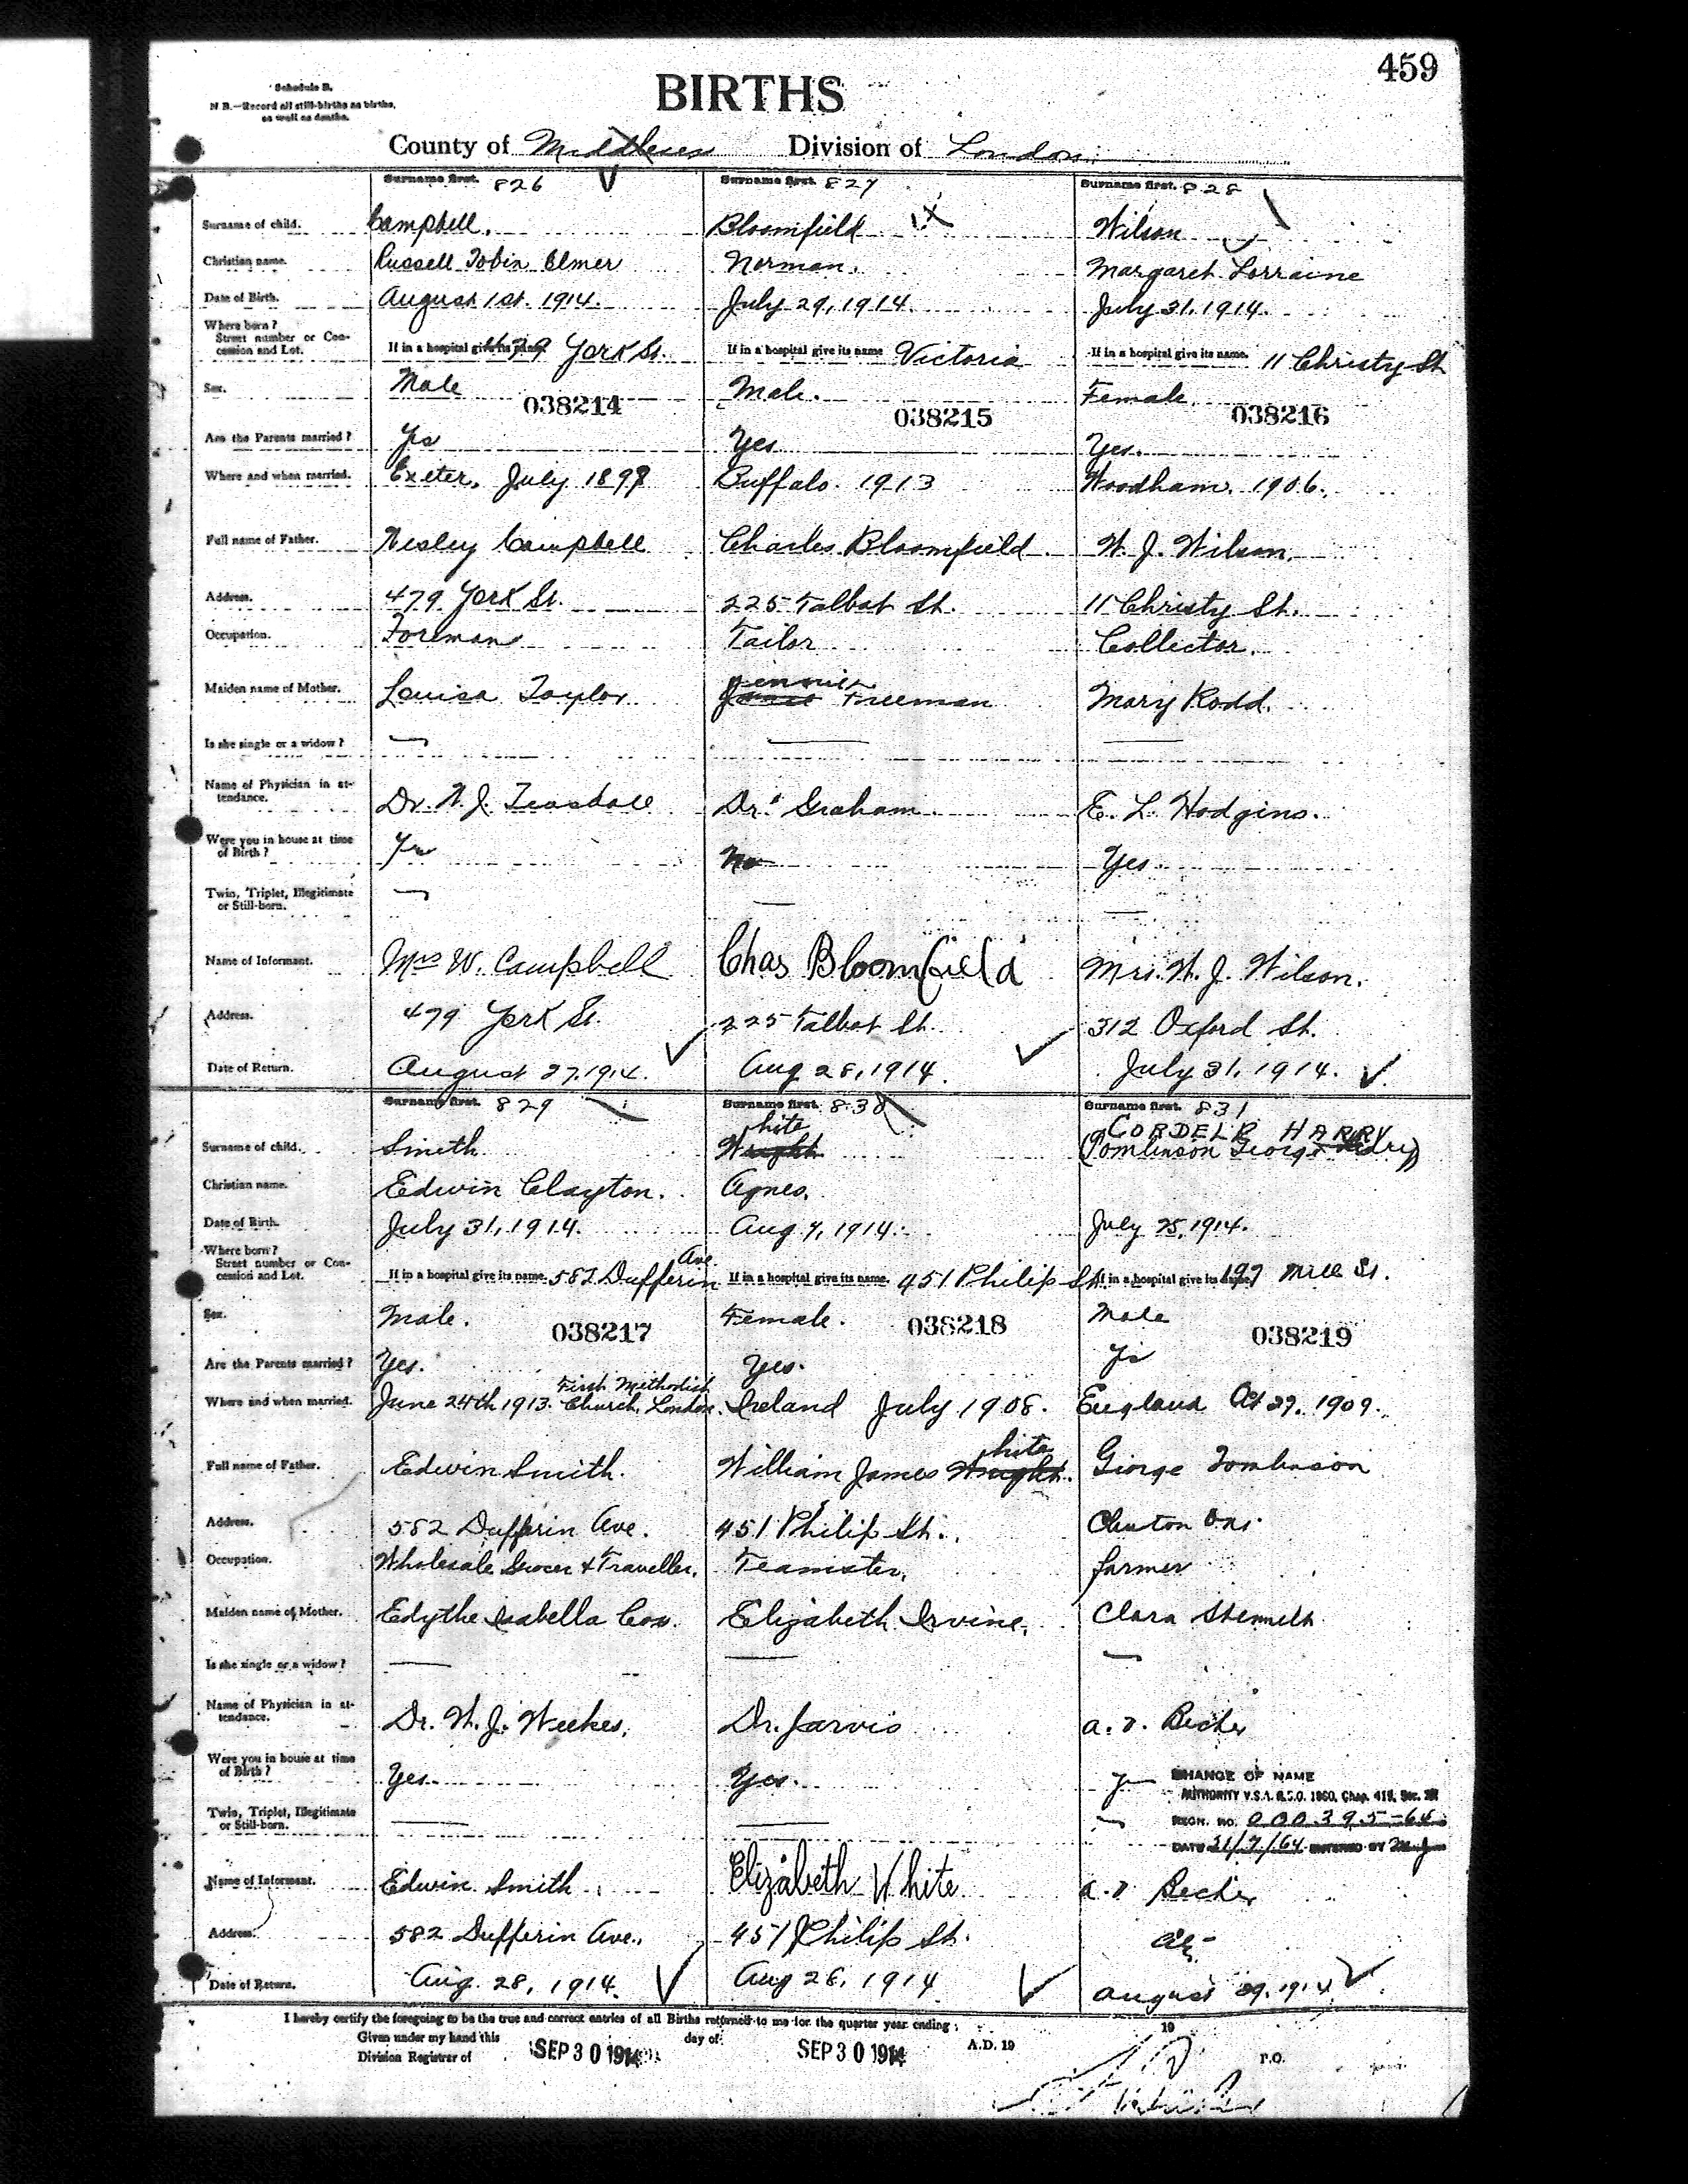 459
Schedule B.
N B.—Record all still-births as births,
as well as deaths.
BIRTHS
County of Middlesex Division of London
Surname first. 826
Surname first. 827
Surname first. 828
Surname of child. Campbell. Bloomfield Wilson
Christian name. Russell Tobin Elmer Norman. Margaret Lorraine
Date of Birth. August 1st. 1914. July 29, 1914. July 31, 1914.
Where born?
Street number or Concession and Lot. If in a hospital give its name 479 York St. If in a hospital give its name Victoria If in a hospital give its name. 11 Christy St
Sex. Male Male. Female
038214 038215 038216
Are the Parents married? Yes Yes Yes.
Where and when married. Exeter, July 1898 Buffalo. 1913 Woodham. 1906.
Full name of Father. Wesley Campbell Charles Bloomfield W. J. Wilson.
Address. 479 York St. 225 Talbot St. 11 Christy St.
Occupation. Foreman Tailor Collector.
Maiden name of Mother. Louisa Taylor Freeman Mary Rodd.
Is she single or a widow? — — —
Name of Physician in attendance. Dr. W. J. Teasdall Dr. Graham. E. L. Hodgins.
Were you in house at time of Birth? Yes No Yes.
Twin, Triplet, Illegitimate or Still-born. — — —
Name of Informant. Mrs W. Campbell Chas Bloomfield Mrs. W. J. Wilson.
Address. 479 York St. 225 Talbot St. 312 Oxford St.
Date of Return. August 27, 1914. Aug 28, 1914. July 31, 1914.
Surname first. 829
Surname first. 830
Surname first. 831
CORDELR HARRY
Surname of child. Smith hite Wright (Tomlinson George
Christian name. Edwin Clayton. Agnes.
Date of Birth. July 31, 1914. Aug 7, 1914. July 25, 1914.
Where born?
Street number or Concession and Lot. If in a hospital give its name. 582 Dufferin Ave. If in a hospital give its name. 451 Philip St. If in a hospital give its name 197 Mill St.
Sex. Male. Female. Male
038217 038218 038219
Are the Parents married? Yes. Yes. Yes
Where and when married. June 24th 1913. First Methodist Church, London. Ireland July 1908. England Oct 27. 1909.
Full name of Father. Edwin Smith. William James hite Wright. George Tomlinson
Address. 582 Dufferin Ave. 451 Philip St. Clinton Ont.
Occupation. Wholesale Grocer & Traveller. Teamster. farmer
Maiden name of Mother. Edythe Isabella Cox. Elizabeth Irvine. Clara Stennett
Is she single or a widow? — — —
Name of Physician in attendance. Dr. W. J. Weekes. Dr. Jarvis a. T. Becher
Were you in house at time of Birth? Yes. Yes. Yes
CHANGE OF NAME
AUTHORITY V.S.A. R.S.O. 1960, Chap. 419, Sec.
Twin, Triplet, Illegitimate or Still-born. — — —
REGN. NO. 000395-64
DATE 31/7/64 ENTERED BY
Name of Informant. Edwin Smith Elizabeth White a. T. Becher
Address. 582 Dufferin Ave. 451 Philip St. City
Date of Return. Aug. 28, 1914. Aug 28, 1914 August 29. 1914
I hereby certify the foregoing to be the true and correct entries of all Births returned to me for the quarter year ending 19
Given under my hand this SEP 30 1914 day of SEP 30 1914 A.D. 19
Division Registrar of P.O.